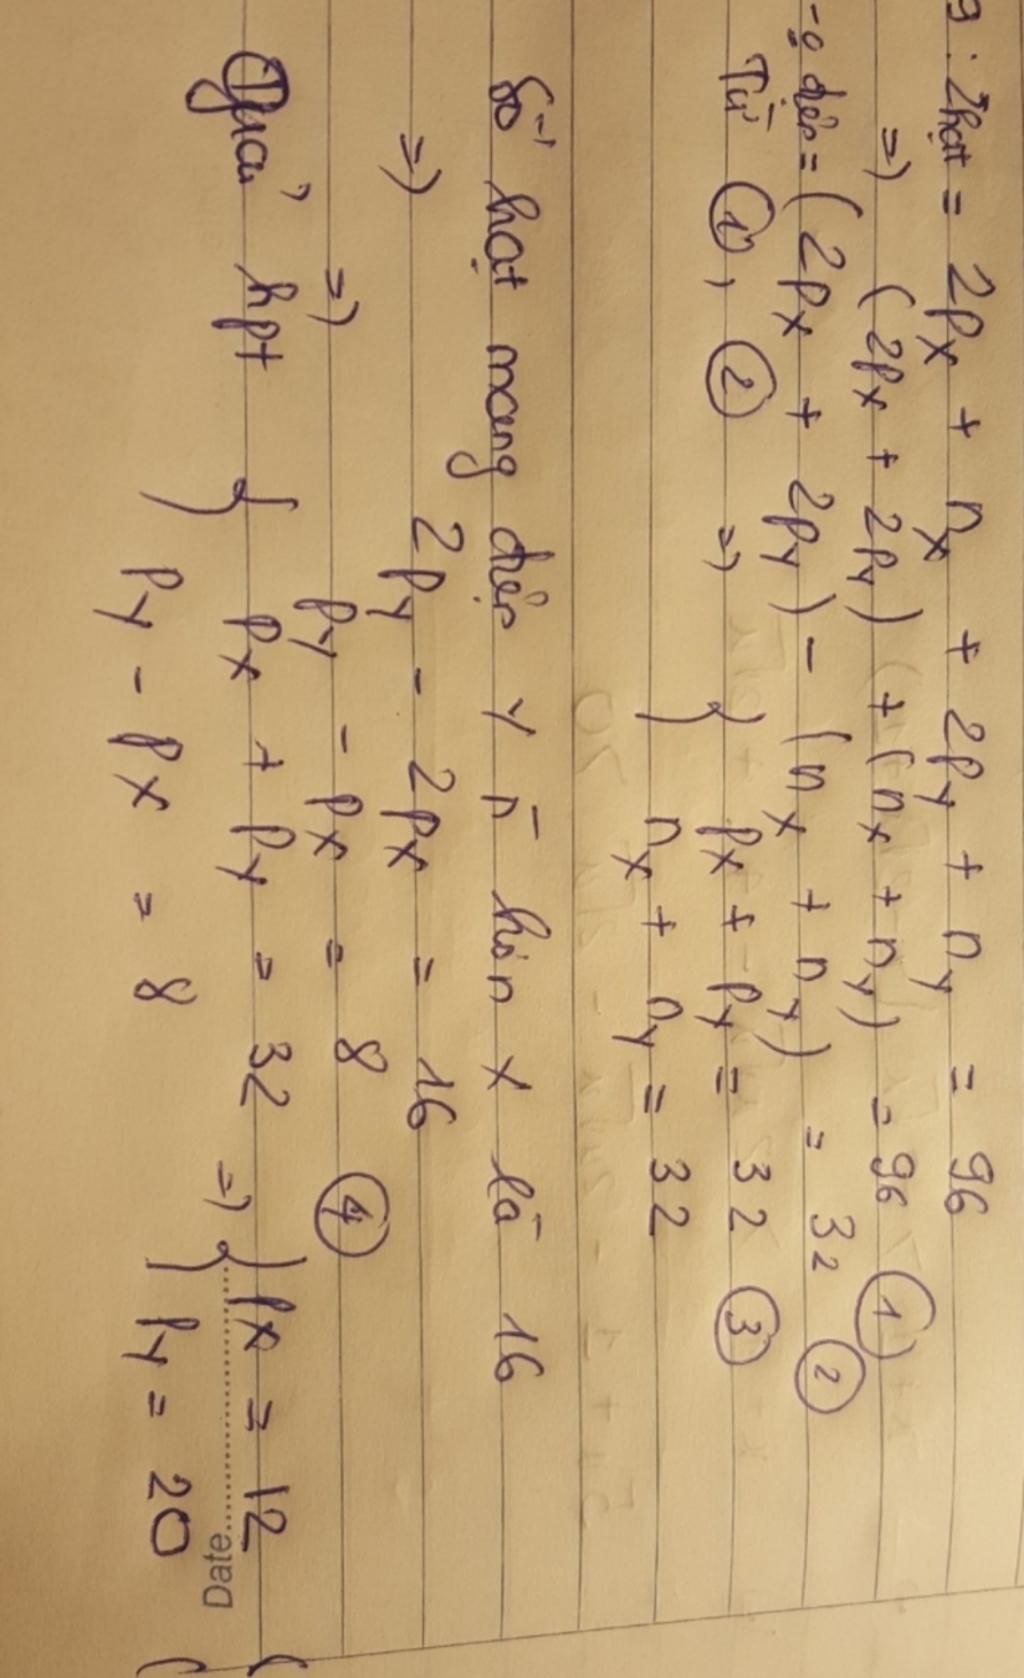 9: Σhạt = 2Px + nx + 2Py + ny = 96
=> (2Px + 2Py) + (nx + ny) = 96 ①
điện = (2Px + 2Py) - (nx + ny) = 32 ②
Từ ①, ② => { Px + Py = 32 ③
nx + ny = 32
Số hạt mang điện Y n̄ hơn X là 16
=> 2Py - 2Px = 16
=> Py - Px = 8 ④
Giải hpt { Px + Py = 32 => { Px = 12
Py - Px = 8 Py = 20
Date